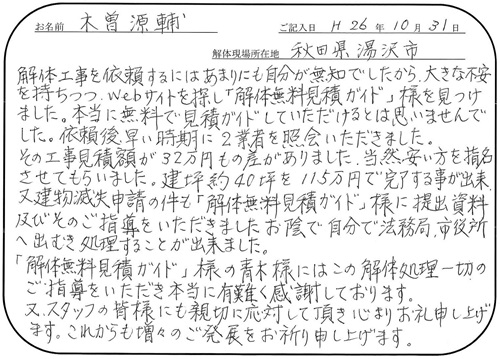 お名前 木曽源輔 ご記入日 H26年10月31日
解体現場所在地 秋田県湯沢市
解体工事を依頼するにはあまりにも自分が無知でしたから、大きな不安
を持ちつつ、Webサイトを探し「解体無料見積ガイド」様を見つけ
ました。本当に無料で見積ガイドしていただけるとは思いませんで
した。依頼後早い時期に2業者を照会いただきました。
その工事見積額が32万円もの差がありました。当然、安い方を指名
させてもらいました。建坪約40坪を115万円で完了する事が出来、
又建物滅失申請の件も「解体無料見積ガイド」様に提出資料
及びそのご指導をいただきましたお陰で自分で法務局、市役所
へ出むき処理することが出来ました。
「解体無料見積ガイド」様の青木様にはこの解体処理一切の
ご指導をいただき本当に有難く感謝しております。
又、スタッフの皆様にも親切に応対して頂き心よりお礼申し上げ
ます。これからも増々のご発展をお祈り申し上げます。